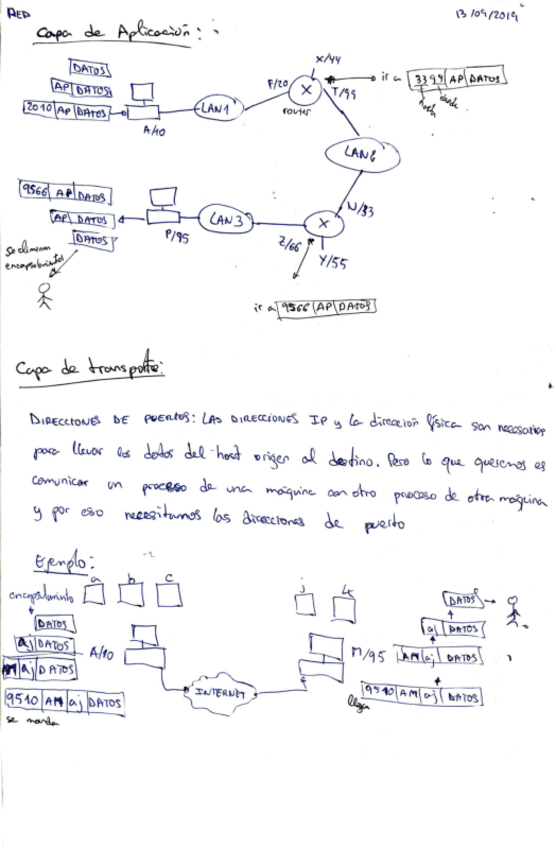 RED
13/09/2019
Capa de Aplicación:
DATOS
AP DATOS
2010 AP DATOS
A/10
LAN1
F/20
X/44
T/99
router
ir a 3399 AP DATOS
LAN2
N/33
9566 AP DATOS
AP DATOS
DATOS
P/95
LAN3
Z/66
Y/55
se eliminan
encapsulamientos
ir a 9566 AP DATOS
Capa de transporte:
DIRECCIONES DE PUERTOS: LAS DIRECCIONES IP y la dirección física son necesarias
para llevar los datos del host origen al destino. Pero lo que queremos es
comunicar un proceso de una máquina con otro proceso de otra máquina
y por eso necesitamos las direcciones de puerto
Ejemplo:
a b c
j
encapsulamiento
DATOS
aj DATOS
AM aj DATOS
9510 AM aj DATOS
se manda
A/10
INTERNET
M/95
DATOS
aj DATOS
AM aj DATOS
9510 AM aj DATOS
llega